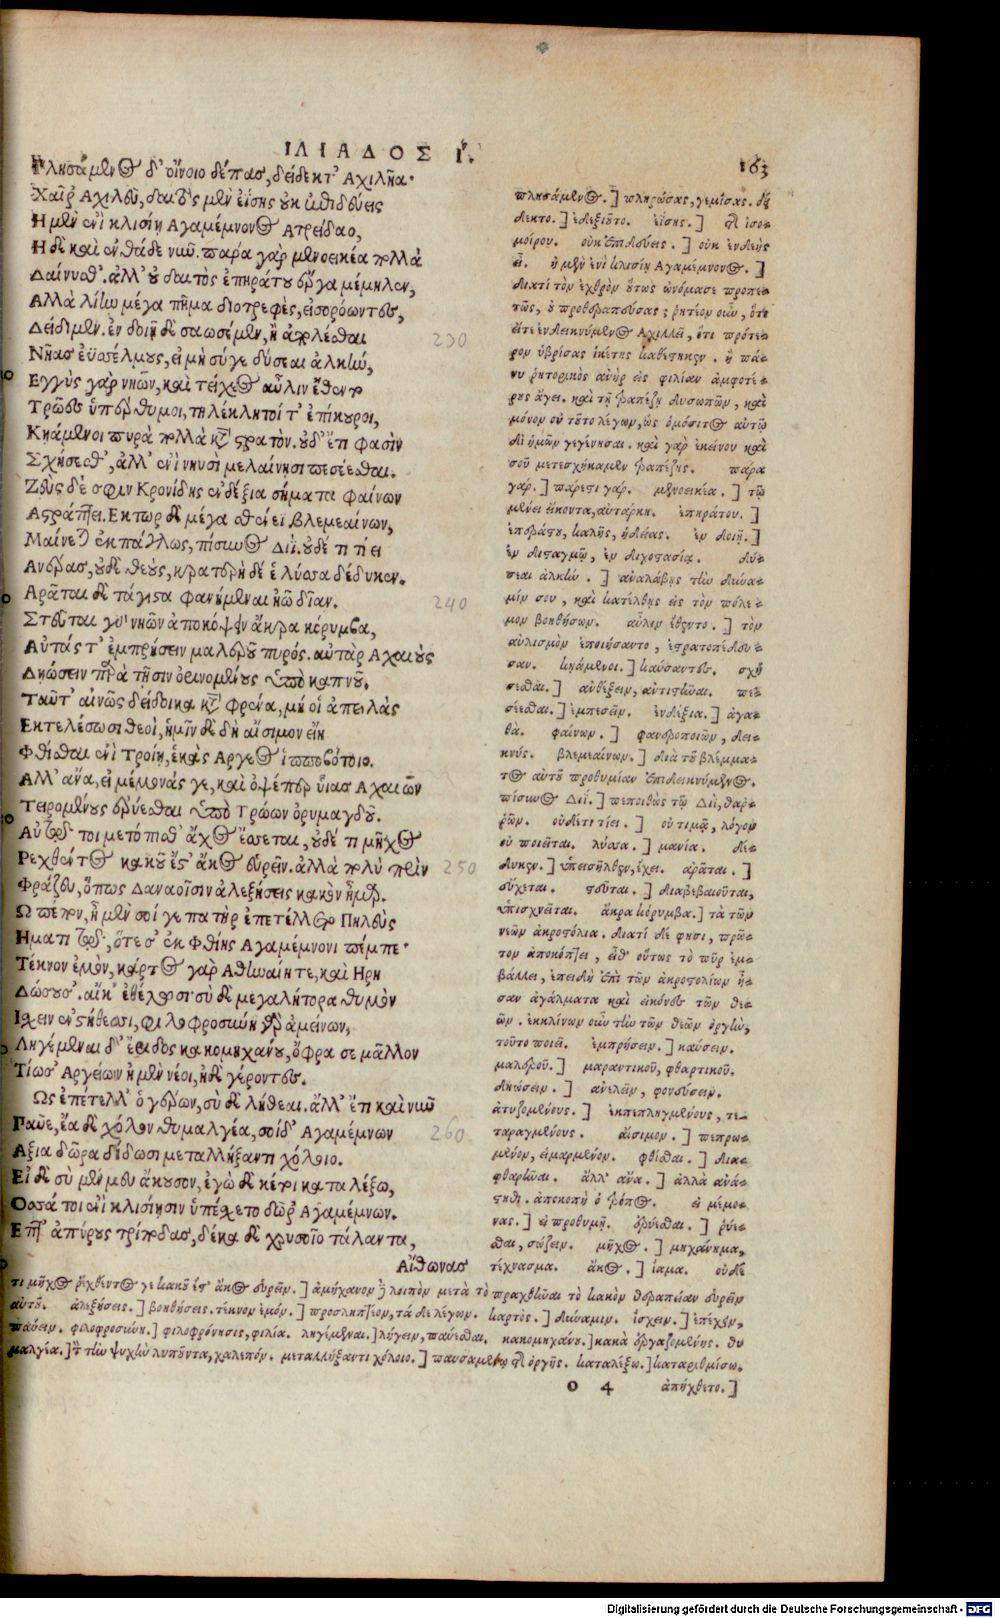 ΙΛΙΑΔΟΣ Ι.
163
Πλησάμενος δ' οἴνοιο δέπας, δείδεκτ' Αχιλῆα·
Χαῖρ' Αχιλεῦ, δαιτὸς μὲν ἐΐσης οὐκ ἐπιδευεῖς
Η μὲν ἐνὶ κλισίῃ Αγαμέμνονος Ατρείδαο,
Η δὲ καὶ ἐνθάδε νιῶ. πάρα γὰρ μενοεικέα πολλὰ
Δαίνυσθ'. ἀλλ' οὐ δαιτὸς ἐπηράτου ἔργα μέμηλεν,
Αλλὰ λίην μέγα πῆμα διοτρεφὲς, εἰσορόωντες,
Δείδιμεν. ἐν δοιῇ δὲ σαωσέμεν, ἢ ἀπολέσθαι
230
Νῆας ἐϋσσέλμους, εἰ μὴ σύγε δύσεαι ἀλκὴν,
Εγγὺς γὰρ νηῶν, καὶ τείχεος αὖλιν ἔθεντο
Τρῶες ὑπέρθυμοι, τηλέκλητοί τ' ἐπίκουροι,
Κηάμενοι πυρὰ πολλὰ κατὰ στρατὸν. οὐδ' ἔτι φασὶν
Σχήσεσθ', ἀλλ' ἐνὶ νηυσὶ μελαίνῃσι πεσέεσθαι.
Ζεὺς δέ σφιν Κρονίδης ἐνδέξια σήματα φαίνων
Αστράπτει. Εκτωρ δὲ μέγα σθένεϊ βλεμεαίνων,
Μαίνεται ἐκπάγλως, πίσυνος Διΐ. οὐδέ τι τίει
Ανέρας, οὐδὲ θεοὺς, κρατερὴ δέ ἑ λύσσα δέδυκεν.
Αρᾶται δὲ τάχιστα φανήμεναι ἠῶ δῖαν.
240
Στεῦται γὰρ νηῶν ἀποκόψειν ἄκρα κόρυμβα,
Αὐτάς τ' ἐμπρήσειν μαλεροῦ πυρός. αὐτὰρ Αχαιοὺς
Δῃώσειν παρὰ τῇσιν ὀρινομένους ὑπὸ καπνοῦ.
Ταῦτ' αἰνῶς δείδοικα κατὰ φρένα, μή οἱ ἀπειλὰς
Εκτελέσωσι θεοὶ, ἡμῖν δὲ δὴ αἴσιμον εἴη
Φθίσθαι ἐνὶ Τροίῃ, ἑκὰς Αργεος ἱπποβότοιο.
Αλλ' ἄνα, εἰ μέμονάς γε, καὶ ὀψέπερ υἷας Αχαιῶν
Τειρομένους ἐρύεσθαι ὑπὸ Τρώων ὀρυμαγδοῦ.
Αὐτῷ τοι μετόπισθ' ἄχος ἔσσεται, οὐδέ τι μῆχος
Ρεχθέντος κακοῦ ἔστ' ἄκος εὑρεῖν. ἀλλὰ πολὺ πρὶν
250
Φράζευ, ὅπως Δαναοῖσιν ἀλεξήσεις κακὸν ἦμαρ.
Ω πέπον, ἦ μὲν σοί γε πατὴρ ἐπετέλλετο Πηλεὺς
Ηματι τῷ, ὅτε σ' ἐκ Φθίης Αγαμέμνονι πέμπε·
Τέκνον ἐμὸν, κάρτος γὰρ Αθηναίη τε, καὶ Ηρη
Δώσουσ'. αἴκ' ἐθέλωσι· σὺ δὲ μεγαλήτορα θυμὸν
Ισχειν ἐν στήθεσσι, φιλοφροσύνη γὰρ ἀμείνων,
Ληγέμεναι δ' ἔριδος κακομηχάνου, ὄφρα σε μᾶλλον
Τίωσ' Αργείων ἠμὲν νέοι, ἠδὲ γέροντες.
Ως ἐπέτελλ' ὁ γέρων, σὺ δὲ λήθεαι. ἀλλ' ἔτι καὶ νῦν
Παῦε, ἔα δὲ χόλον θυμαλγέα, σοὶ δ' Αγαμέμνων
260
Αξια δῶρα δίδωσι μεταλλήξαντι χόλοιο.
Εἰ δὲ σὺ μέν μευ ἄκουσον, ἐγὼ δὲ κέ τοι καταλέξω,
Οσσά τοι ἐνὶ κλισίῃσιν ὑπέσχετο δῶρ' Αγαμέμνων.
Επτ' ἀπύρους τρίποδας, δέκα δὲ χρυσοῖο τάλαντα,
Αἴθωνας
πλησάμενος.] πληρώσας, γεμίσας. δεί-
δεκτο.] ἐδεξιοῦτο. ἐΐσης.] τῆς ἰσο-
μοίρου. οὐκ ἐπιδευεῖς.] οὐκ ἐνδεὴς
εἶ. ἠ μὲν ἐνὶ κλισίῃ Αγαμέμνονος.]
διατί τὸν ἐχθρὸν οὕτως ὠνόμασε προπε-
τῶς, οὐ προθεραπεύσας; ῥητέον οὖν, ὅτι
εἴτε ἐνδεικνύμενος Αχιλλεῖ, ὅτι πρότε-
ρον ὑβρίσας ἱκέτης καθέστηκεν. ἢ πά-
νυ ῥητορικὸς ἀνὴρ εἰς φιλίαν ἀμφοτέ-
ρους ἄγει. καὶ τῇ τραπέζῃ δυσωπῶν, καὶ
μόνον οὐ τοῦτο λέγων, ὡς ὁμόσιτος αὐτῷ
δι' ἡμῶν γεγένησαι. καὶ γὰρ ἐκείνου καὶ
σοῦ μετεσχήκαμεν τραπέζης. πάρα
γάρ.] πάρεστι γάρ. μενοεικέα.] τῷ
μένει εἴκοντα, αὐτάρκη. ἐπηράτου.]
ἐπεράστου, καλῆς, ἡδείας. ἐν δοιῇ.]
ἐν δισταγμῷ, ἐν διχοστασίᾳ. δύ-
σεαι ἀλκήν.] ἀναλάβῃς τὴν δύνα-
μίν σου, καὶ κατέλθῃς εἰς τὸν πόλε-
μον βοηθήσων. αὖλιν ἔθεντο.] τὸν
αὐλισμὸν ἐποιήσαντο, ἐστρατοπέδευ-
σαν. κηάμενοι.] καύσαντες. σχή-
σεσθαι.] ἀνθέξειν, ἀντιστῆναι. πε-
σέεσθαι.] ἐμπεσεῖν. ἐνδέξια.] ἀγα-
θά. φαίνων.] φανεροποιῶν, δει-
κνύς. βλεμεαίνων.] διὰ τοῦ βλέμμα-
τος αὐτοῦ προθυμίαν ἐπιδεικνύμενος.
πίσυνος Διΐ.] πεποιθὼς τῷ Διῒ, θαρ-
ρῶν. οὐδέ τι τίει.] οὐ τιμᾷ, λόγον
οὐ ποιεῖται. λύσσα.] μανία. δέ-
δυκεν.] ὑπεισῆλθεν, ἔχει. ἀρᾶται.]
εὔχεται. στεῦται.] διαβεβαιοῦται,
ὑπισχνεῖται. ἄκρα κόρυμβα.] τὰ τῶν
νεῶν ἀκροστόλια. διατί δέ φησι, πρῶ-
τον ἀποκόπτει, εἶθ' οὕτως τὸ πῦρ ἐμ-
βάλλει, ἐπειδὴ ἐπὶ τῶν ἀκροστολίων ἦ-
σαν ἀγάλματα καὶ εἰκόνες τῶν θε-
ῶν. ἐκκλίνων οὖν τὴν τῶν θεῶν ὀργὴν,
τοῦτο ποιεῖ. ἐμπρήσειν.] καύσειν.
μαλεροῦ.] μαραντικοῦ, φθαρτικοῦ.
δῃώσειν.] ἀνελεῖν, φονεύσειν.
ἀτυζομένους.] ἐκπεπληγμένους, τε-
ταραγμένους. αἴσιμον.] πεπρω-
μένον, εἱμαρμένον. φθίσθαι.] δια-
φθαρῆναι. ἀλλ' ἄνα.] ἀλλὰ ἀνά-
στηθι. ἀποκοπὴ ὁ τρόπος. εἰ μέμο-
νας.] εἰ προθυμῇ. ἐρύεσθαι.] ῥύε-
σθαι, σώζειν. μῆχος.] μηχάνημα,
τέχνασμα. ἄκος.] ἴαμα. οὐδέ
τι μῆχος ῥεχθέντος γε κακοῦ ἔστ' ἄκος εὑρεῖν.] ἀμήχανον γὰρ λοιπὸν μετὰ τὸ πραχθῆναι τὸ κακὸν θεραπείαν εὑρεῖν
αὐτοῦ. ἀλεξήσεις.] βοηθήσεις. τέκνον ἐμόν.] προσληπτέον, τάδε λέγων. κάρτος.] δύναμιν. ἴσχειν.] ἐπέχειν,
παύειν. φιλοφροσύνη.] φιλοφρόνησις, φιλία. ληγέμεναι.] λήγειν, παύεσθαι. κακομηχάνου.] κακὰ ἐργαζομένης. θυ-
μαλγέα.] τὸν τὴν ψυχὴν λυποῦντα, χαλεπόν. μεταλλήξαντι χόλοιο.] παυσαμένῳ τῆς ὀργῆς. καταλέξω.] καταριθμίσω.
ο 4
ἀπήχθετο.]
Digitalisierung gefördert durch die Deutsche Forschungsgemeinschaft - DFG